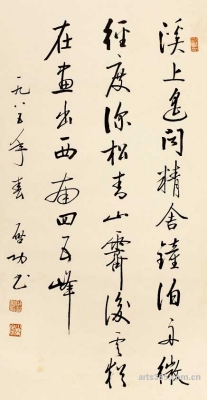 溪上遙聞精舍鐘泊舟微
徑度深松青山霽後雲猶
在畫出西南四五峰
一九八五年春 啟功書